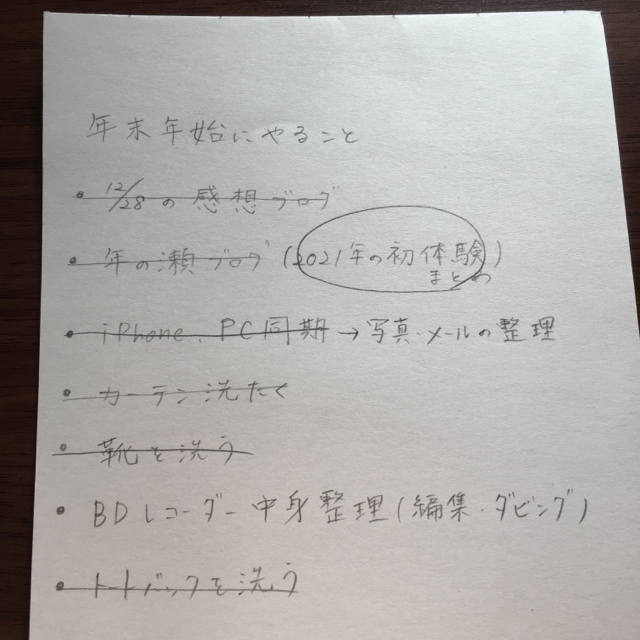 年末年始にやること
・12/28の感想ブログ
・年の瀬ブログ(2021年の初体験)
まとめ
・iPhone、PC同期→写真、メールの整理
・カーテン洗たく
・靴を洗う
・BDレコーダー中身整理(編集・ダビング)
・トートバックを洗う